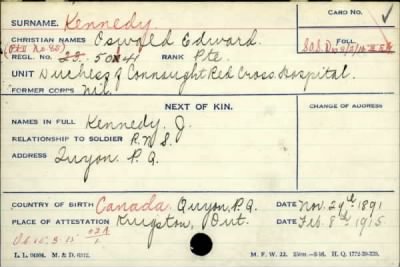 SURNAME. Kennedy CARD NO.
CHRISTIAN NAMES Oswald Edward. FOLL.
REGL. NO. 50841 RANK Pte.
UNIT Duchess of Connaught Red Cross Hospital.
FORMER CORPS Nil.
NEXT OF KIN. CHANGE OF ADDRESS
NAMES IN FULL Kennedy J.
RELATIONSHIP TO SOLDIER
ADDRESS Quyon P.Q.
COUNTRY OF BIRTH Canada Quyon, P.Q. DATE Nov. 29th 1891
PLACE OF ATTESTATION Kingston, Ont. DATE Feb. 8th 1915
L. L. M. & D. M. F. W. 22. H. Q. 1772-39-339.